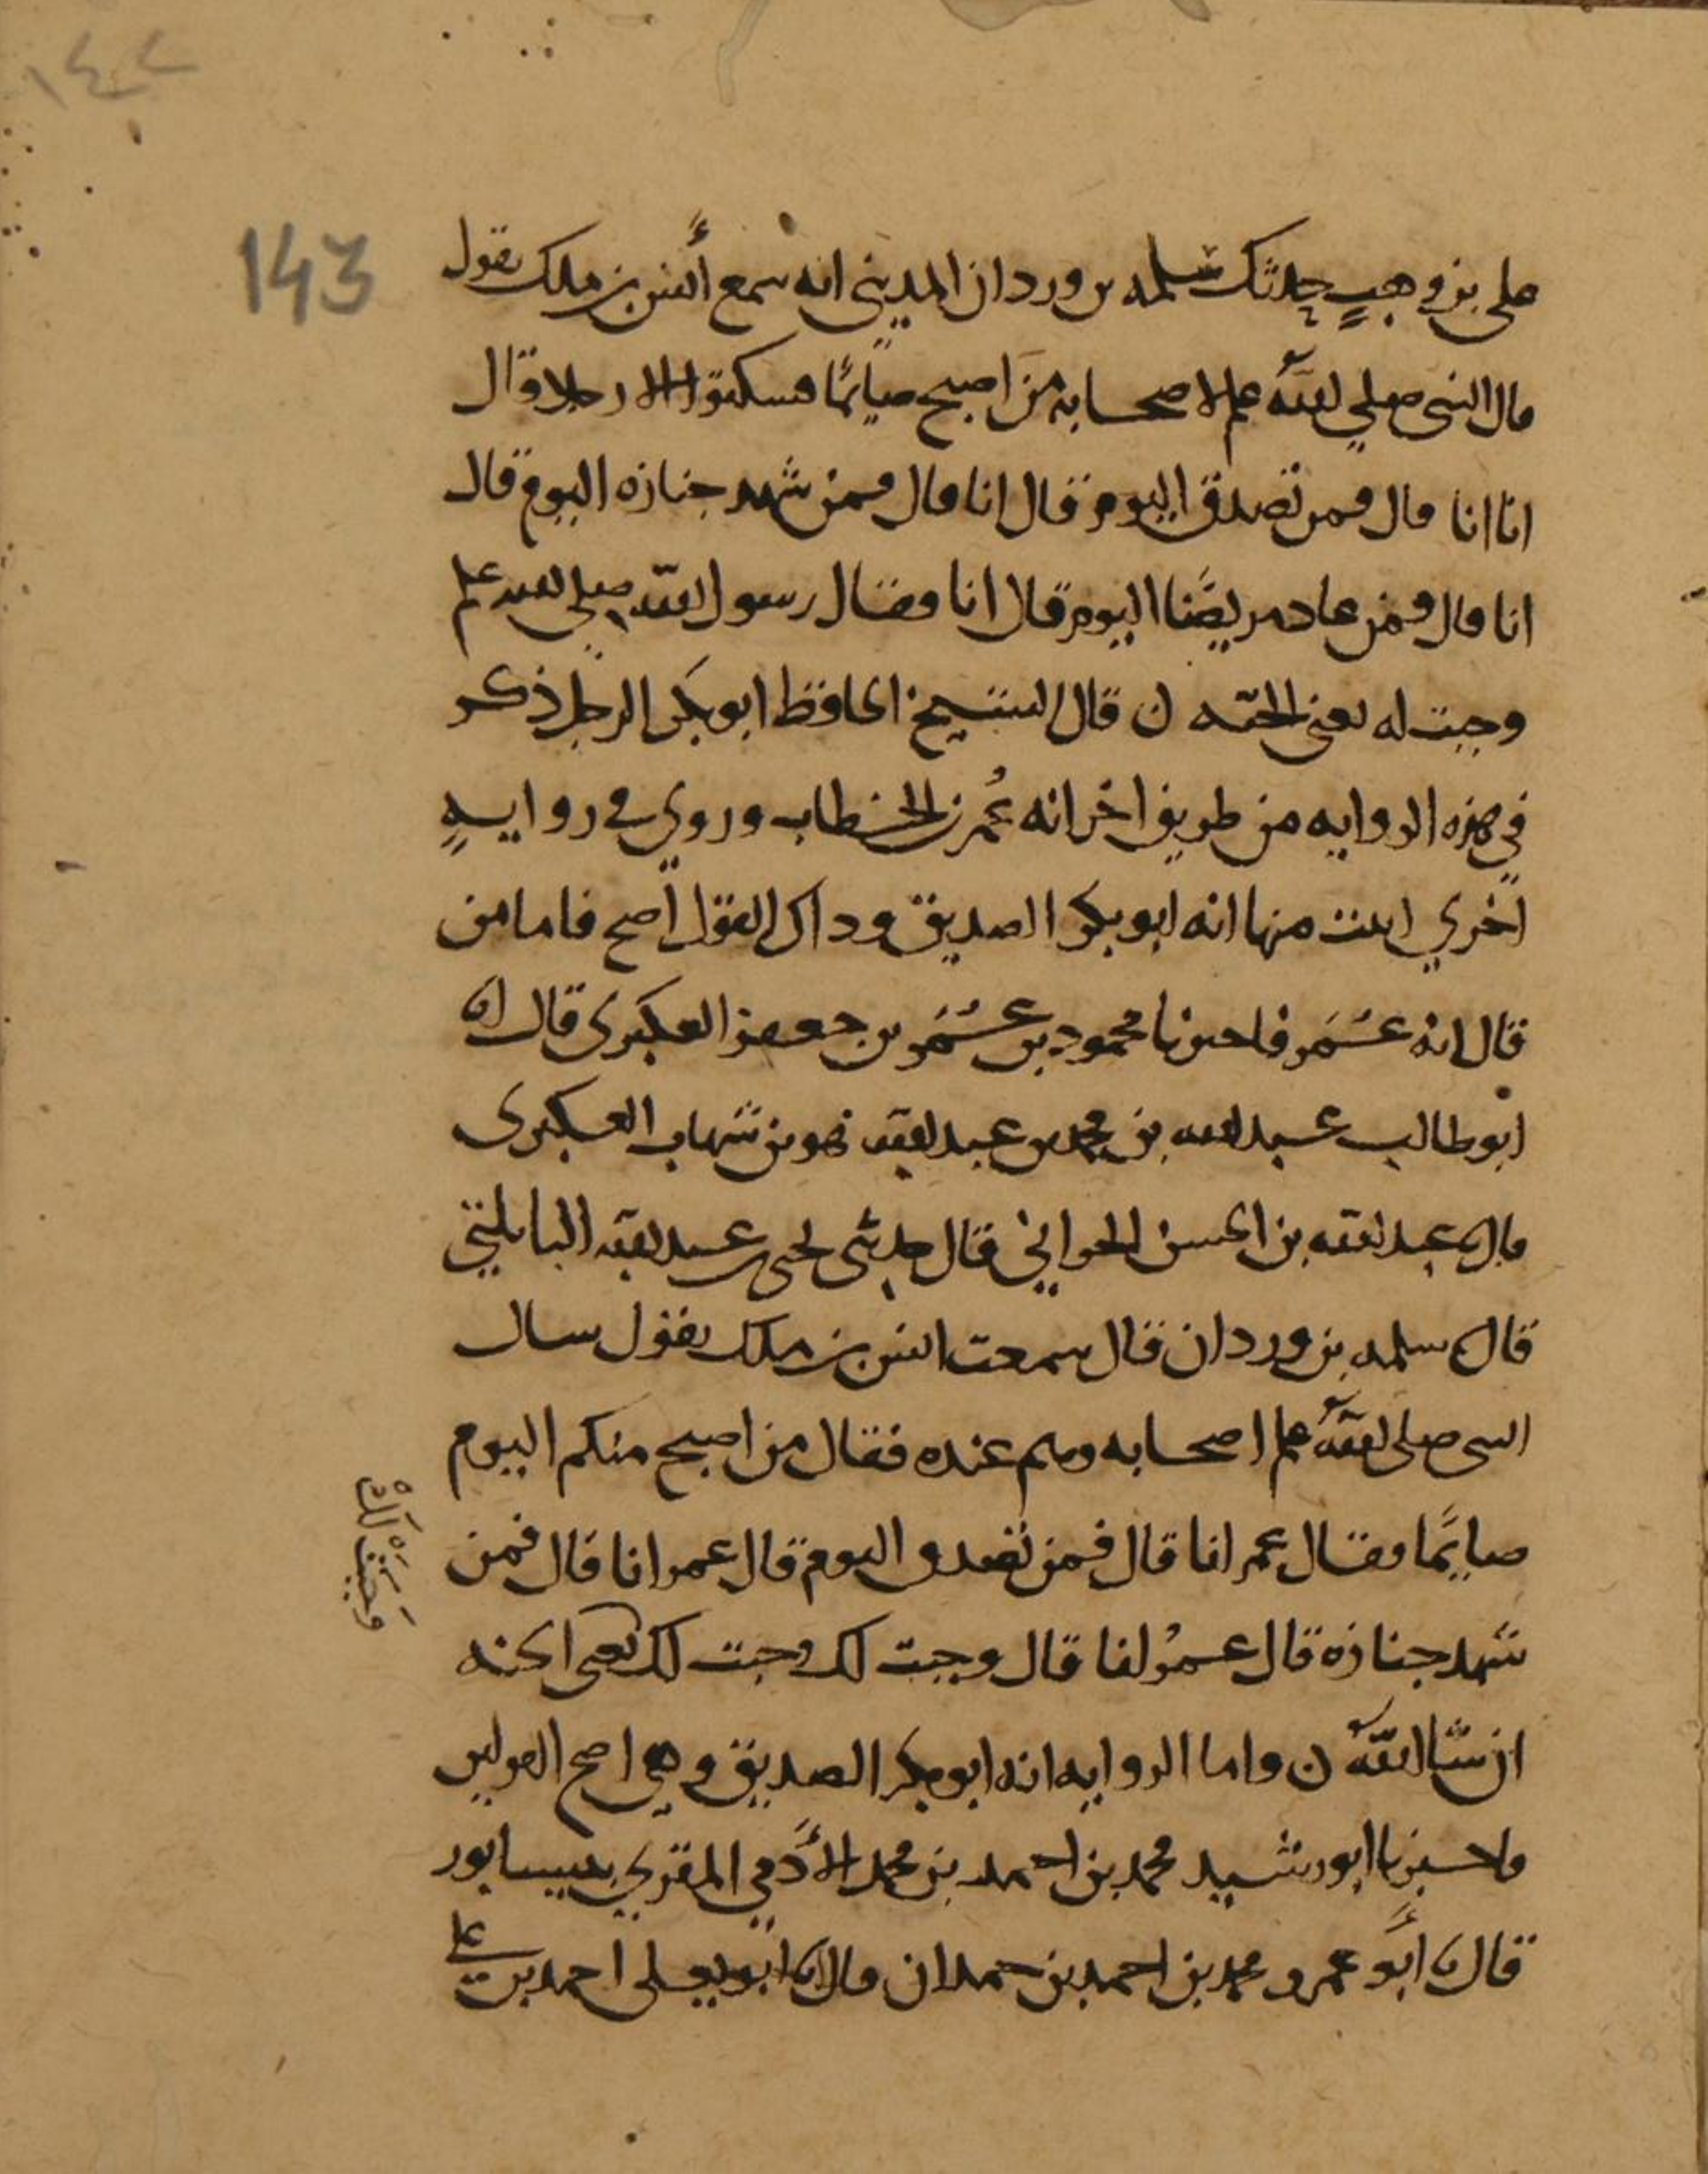 ١٤٢
143
على بن وهب حدثك سلمه بن وردان المديني انه سمع أنس بن ملك يقول
قال النبي صلي الله علم لاصحابه من اصبح صيائما فسكتوا الا رجلا قال
انا انا قال فمن تصدق اليوم قال انا قال فمن شهد جنازه اليوم قال
انا قال فمن عاد مريضا اليوم قال انا فقال رسول الله صلى الله علم
وجبت له يعني الجنه ن قال الشيخ الحافظ ابو بكر الرجل ذكر
في هذه الروايه من طريق اخر انه عمر بن الخطاب وروي في روايه
اخري اثبت منها انه ابو بكر الصديق وذاك القول اصح فاما من
قال انه عمر فاخبرنا محمود بن عمر بن جعفر العكبرى قال نا
ابو طالب عبد الله بن محمد بن عبد الله بن شهاب العكبرى
قال نا عبد الله بن الحسن الحراني قال حدثني يحيى بن عبد الله البابلتي
قال نا سلمه بن وردان قال سمعت انس بن ملك يقول سال
النبي صلى الله علم اصحابه وهم عنده فقال من اصبح منكم اليوم
صايما فقال عمر انا قال فمن تصدق اليوم قال عمر انا قال فمن
شهد جنازه قال عمر انا قال وجبت لك وجبت لك يعني الجنه
وجبت لك
ان شا الله ن واما الروايه انه ابو بكر الصديق وهي اصح القولين
فاخبرنا ابو رشيد محمد بن احمد بن محمد الأدمي المقري بنيسابور
قال نا أبو عمرو محمد بن احمد بن حمدان قال نا ابو يعلى احمد بن علي